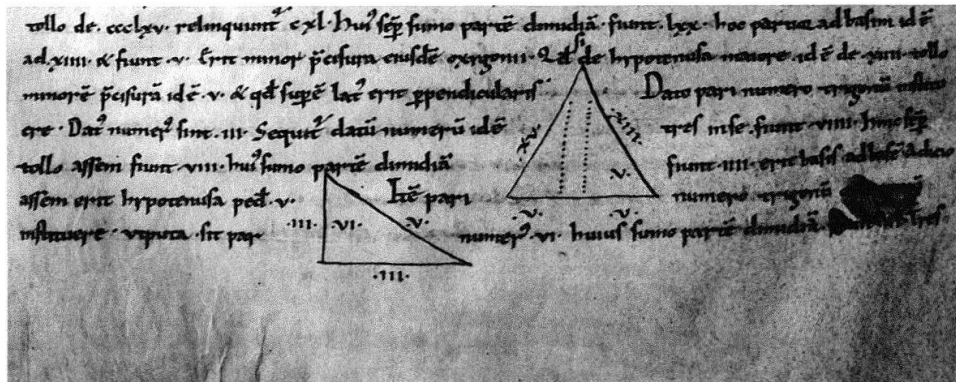 tollo de · ccclxv · relinquunt᷑ cxl · hui᷒ sēp sumo partē dimidiā · fiunt · lxx · hoc partior ad basim id ē
ad xiiii · & fiunt · v · Erit minor p̄cisura eiusdē oxigonii · de hypotenusa maiore id ē de · xiii · tollo
minorē p̄cisurā id ē · v · & qd̄ supē erit ppendicularis Dato pari numero trigonū institu
ere · Dat᷒ numer᷒ sint · iii · Sequit᷑ datū numerū id ē tres in se · fiunt · viiii · hinc sēp
tollo assem fiunt · viii · hui᷒ sumo partē dimidiā fiunt · iiii · erit basis ad basē adicio
assem erit hypotenusa ped̄ · v · Itē pari numero trigonū
instituere · utputa · sit par numer᷒ · vi · huius sumo partē dimidiā tres ·
xv
xiii
· v ·
· v · · v ·
· iii · · vi · · v ·
· iii ·